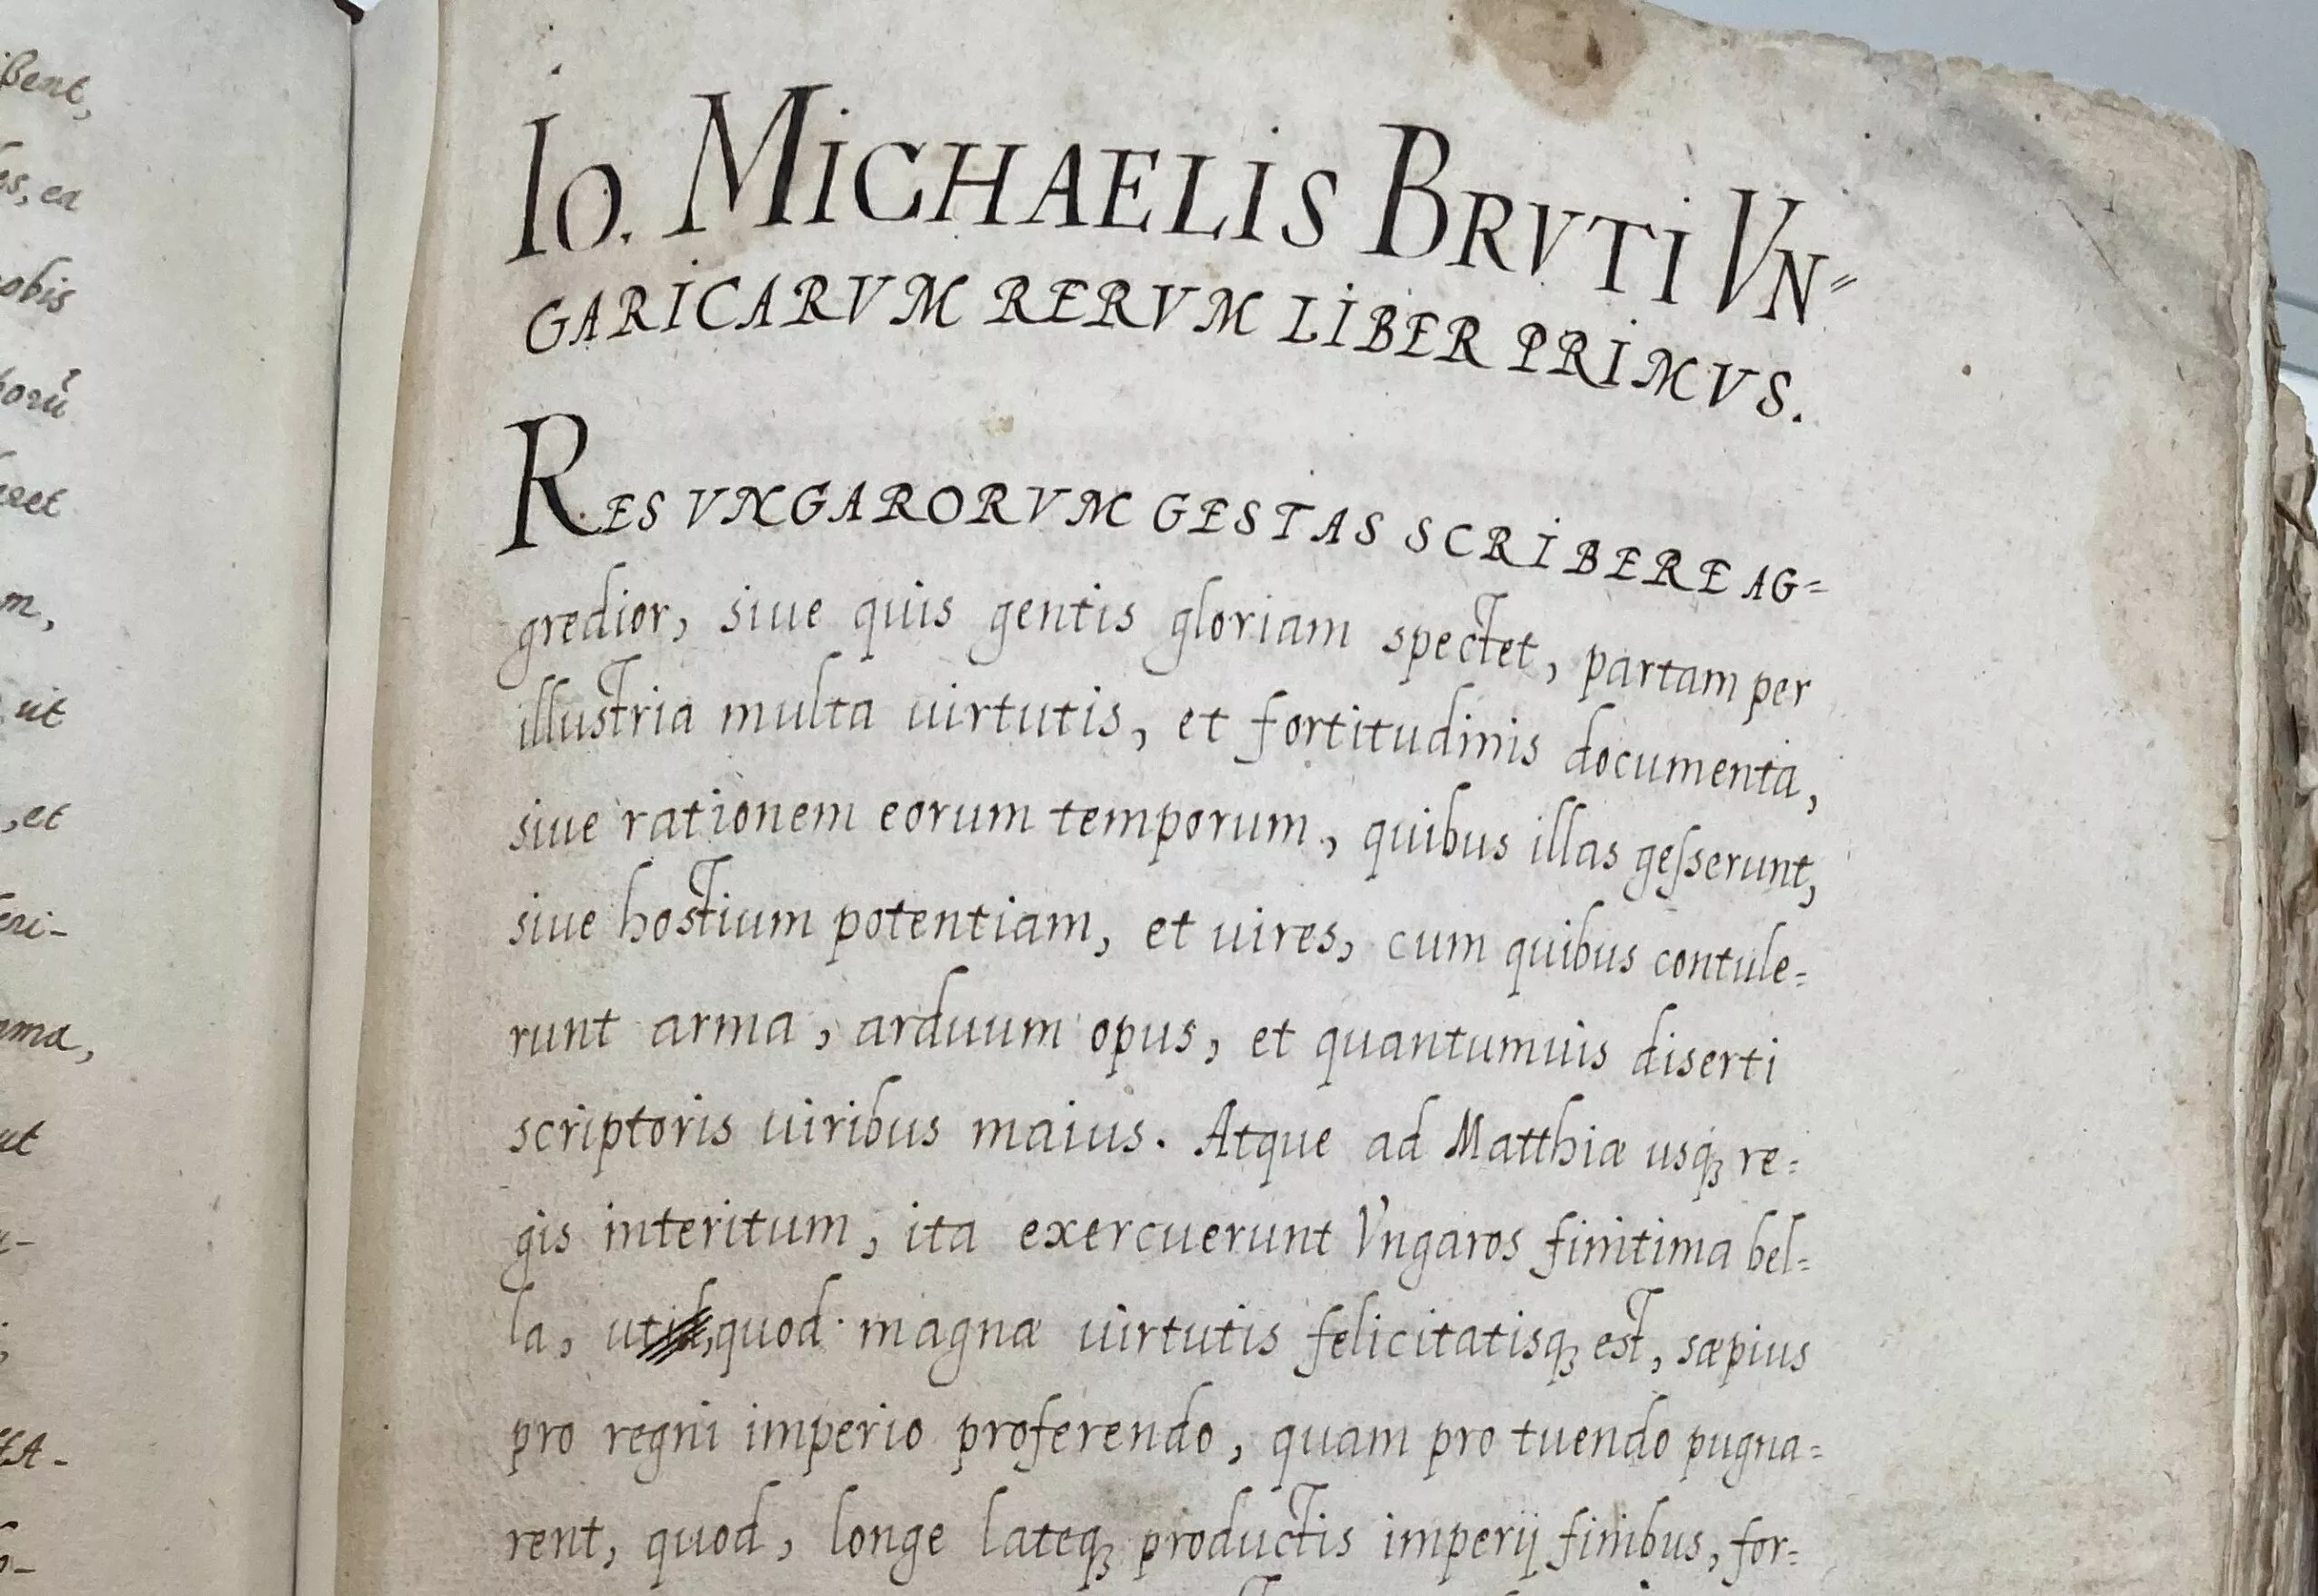 ßent,
os, ea
obis
porũ
aret
m,
ut
, et
feri-
mma,
ut
ffA-
Io. MICHAELIS BRVTI VN=
GARICARVM RERVM LIBER PRIMVS.
RES VNGARORVM GESTAS SCRIBERE AG=
gredior, siue quis gentis gloriam spectet, partam per
illustria multa uirtutis, et fortitudinis documenta,
siue rationem eorum temporum, quibus illas geſserunt,
siue hostium potentiam, et uires, cum quibus contule=
runt arma, arduum opus, et quantumuis diserti
scriptoris uiribus maius. Atque ad Matthiæ usq₃ re=
gis interitum, ita exercuerunt Vngaros finitima bel=
la, ut quod magnæ uirtutis felicitatisq₃ est, sæpius
pro regni imperio proferendo, quam pro tuendo pugna=
rent, quod, longe lateq₃ productis imperij finibus, for=